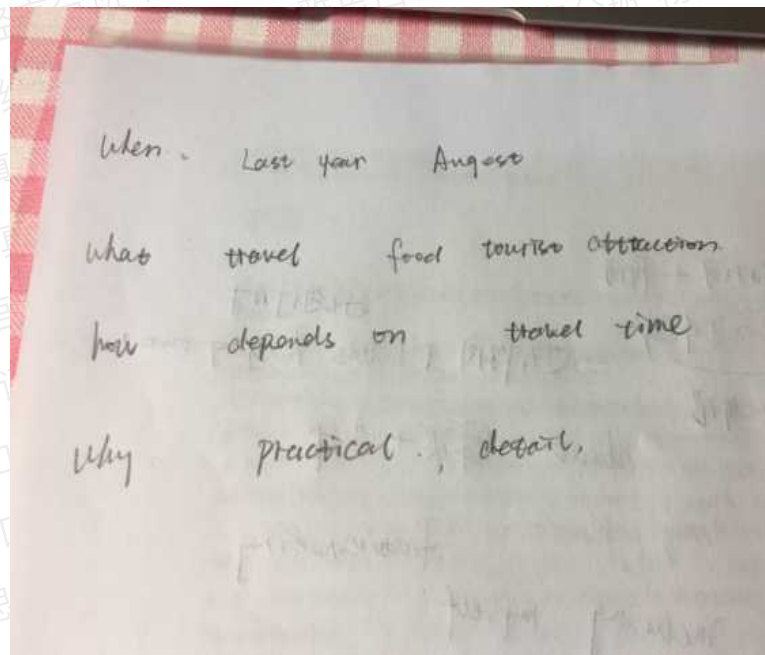 when. Last year Augest
what travel food tourist attraction
how depends on travel time
why practical, detail,